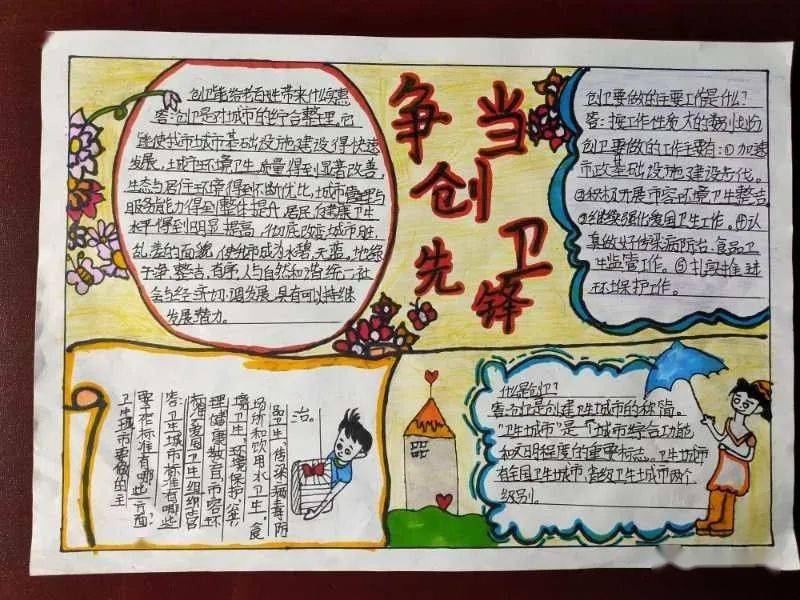 争当
创卫
先锋
创卫能给老百姓带来什么实惠
答:创卫是对城市的综合整理。它
能使我市城市基础设施建设得快速
发展,城市环境卫生质量得到显著改善,
生态与居住环境得到不断优比,城市管理与
服务能力得到整体提升,居民健康卫生
水平得到明显提高,彻底改变城市脏、
乱、差的面貌,使我市成为水碧、天蓝、地绿
干净、整洁、有序,人与自然和谐统一社
会与经济切调发展,具有可以持继
发展潜力。
创卫要做的主要工作是什么?
答:按工作性质大的类别划分
创卫要做的工作主要有:①加速
市政基础设施建设步伐。
②积极开展市容环境卫生整洁
③继续强化爱国卫生工作。④认
真做好传染病防治、食品卫
生监管工作。⑤扎实推进
环境保护工作。
卫生城市要做的主
要工作标准有哪些方面?
答:卫生城市标准有哪些
标准爱国卫生组织管
理健康教育市容环
境卫生、环境保护、公共
场所和饮用水卫生、食
品卫生、传染病毒防
治。
什么是创卫?
答:创卫是创建卫生城市的秾简。
"卫生城市"是一个城市综合功能
和文明程度的重要标志。卫生城市
有全国卫生城市、省级卫生城市两个
级别。